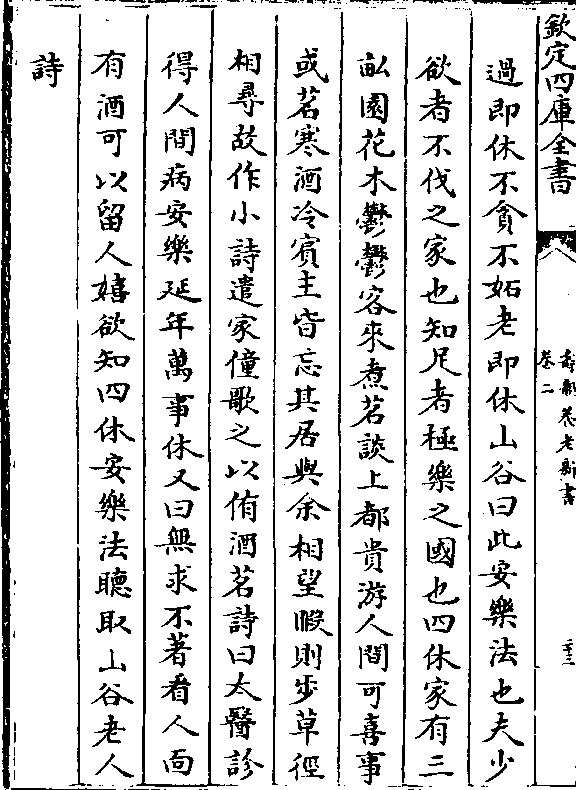 欽定四庫全書
壽親養老新書
卷二
過即休不貪不妬老即休山谷曰此安樂法也夫少
欲者不伐之家也知足者極樂之國也四休家有三
畝園花木鬱鬱客來煮茗談上都貴游人間可喜事
或茗寒酒冷賓主皆忘其居與余相望暇則步草徑
相尋故作小詩遣家僮歌之以侑酒茗詩曰太醫診
得人間病安樂延年萬事休又曰無求不著看人面
有酒可以留人嬉欲知四休安樂法聽取山谷老人
詩